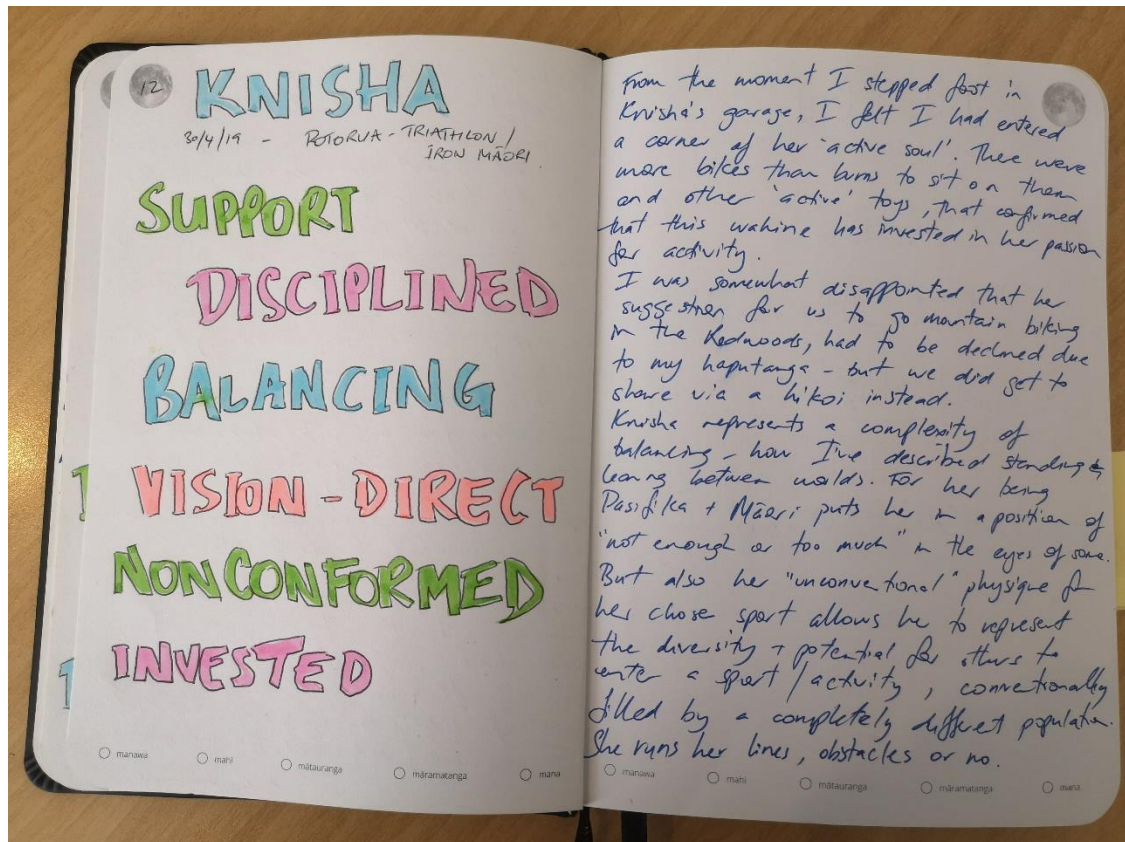 12
KNISHA
30/4/19 - ROTORUA - TRIATHLON /
IRON MĀORI
SUPPORT
DISCIPLINED
BALANCING
VISION - DIRECT
NONCONFORMED
INVESTED
manawa mahi mātauranga māramatanga mana
From the moment I stepped foot in
Knisha's garage, I felt I had entered
a corner of her 'active soul'. There were
more bikes than bums to sit on them
and other 'active' toys, that confirmed
that this wahine has invested in her passion
for activity.
I was somewhat disappointed that her
suggestion for us to go mountain biking
in the Redwoods, had to be declined due
to my haputanga - but we did get to
share via a hikoi instead.
Knisha represents a complexity of
balancing - how I've described standing &
leaning between worlds. For her being
Pasifika + Māori puts her in a position of
"not enough or too much" in the eyes of some.
But also her "unconventional" physique for
her chose sport allows her to represent
the diversity + potential for others to
enter a sport / activity, conventionally
filled by a completely different population.
She runs her lines, obstacles or no.
manawa mahi mātauranga māramatanga mana